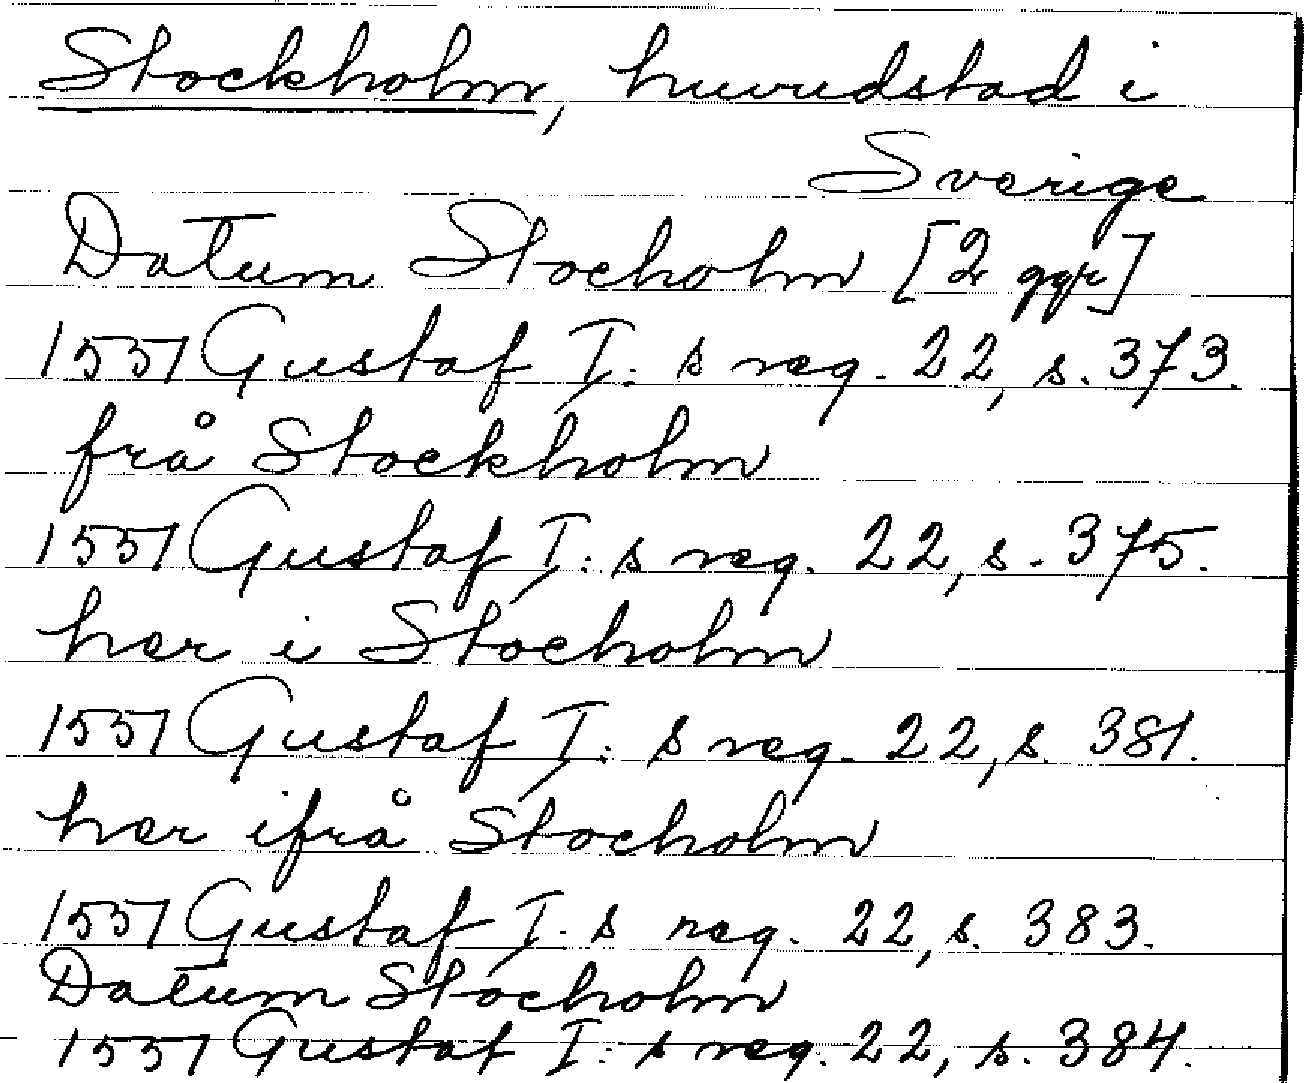 Stockholm, huvudstad i
Sverige
Datum Stocholm [2 ggr]
1551 Gustaf I: s reg. 22, s. 373.
frå Stockholm
1551 Gustaf I: s reg. 22, s. 375.
her i Stocholm
1551 Gustaf I: s reg. 22, s. 381.
her ifrå Stocholm
1551 Gustaf I: s reg. 22, s. 383.
Datum Stocholm
1551 Gustaf I: s reg. 22, s. 384.